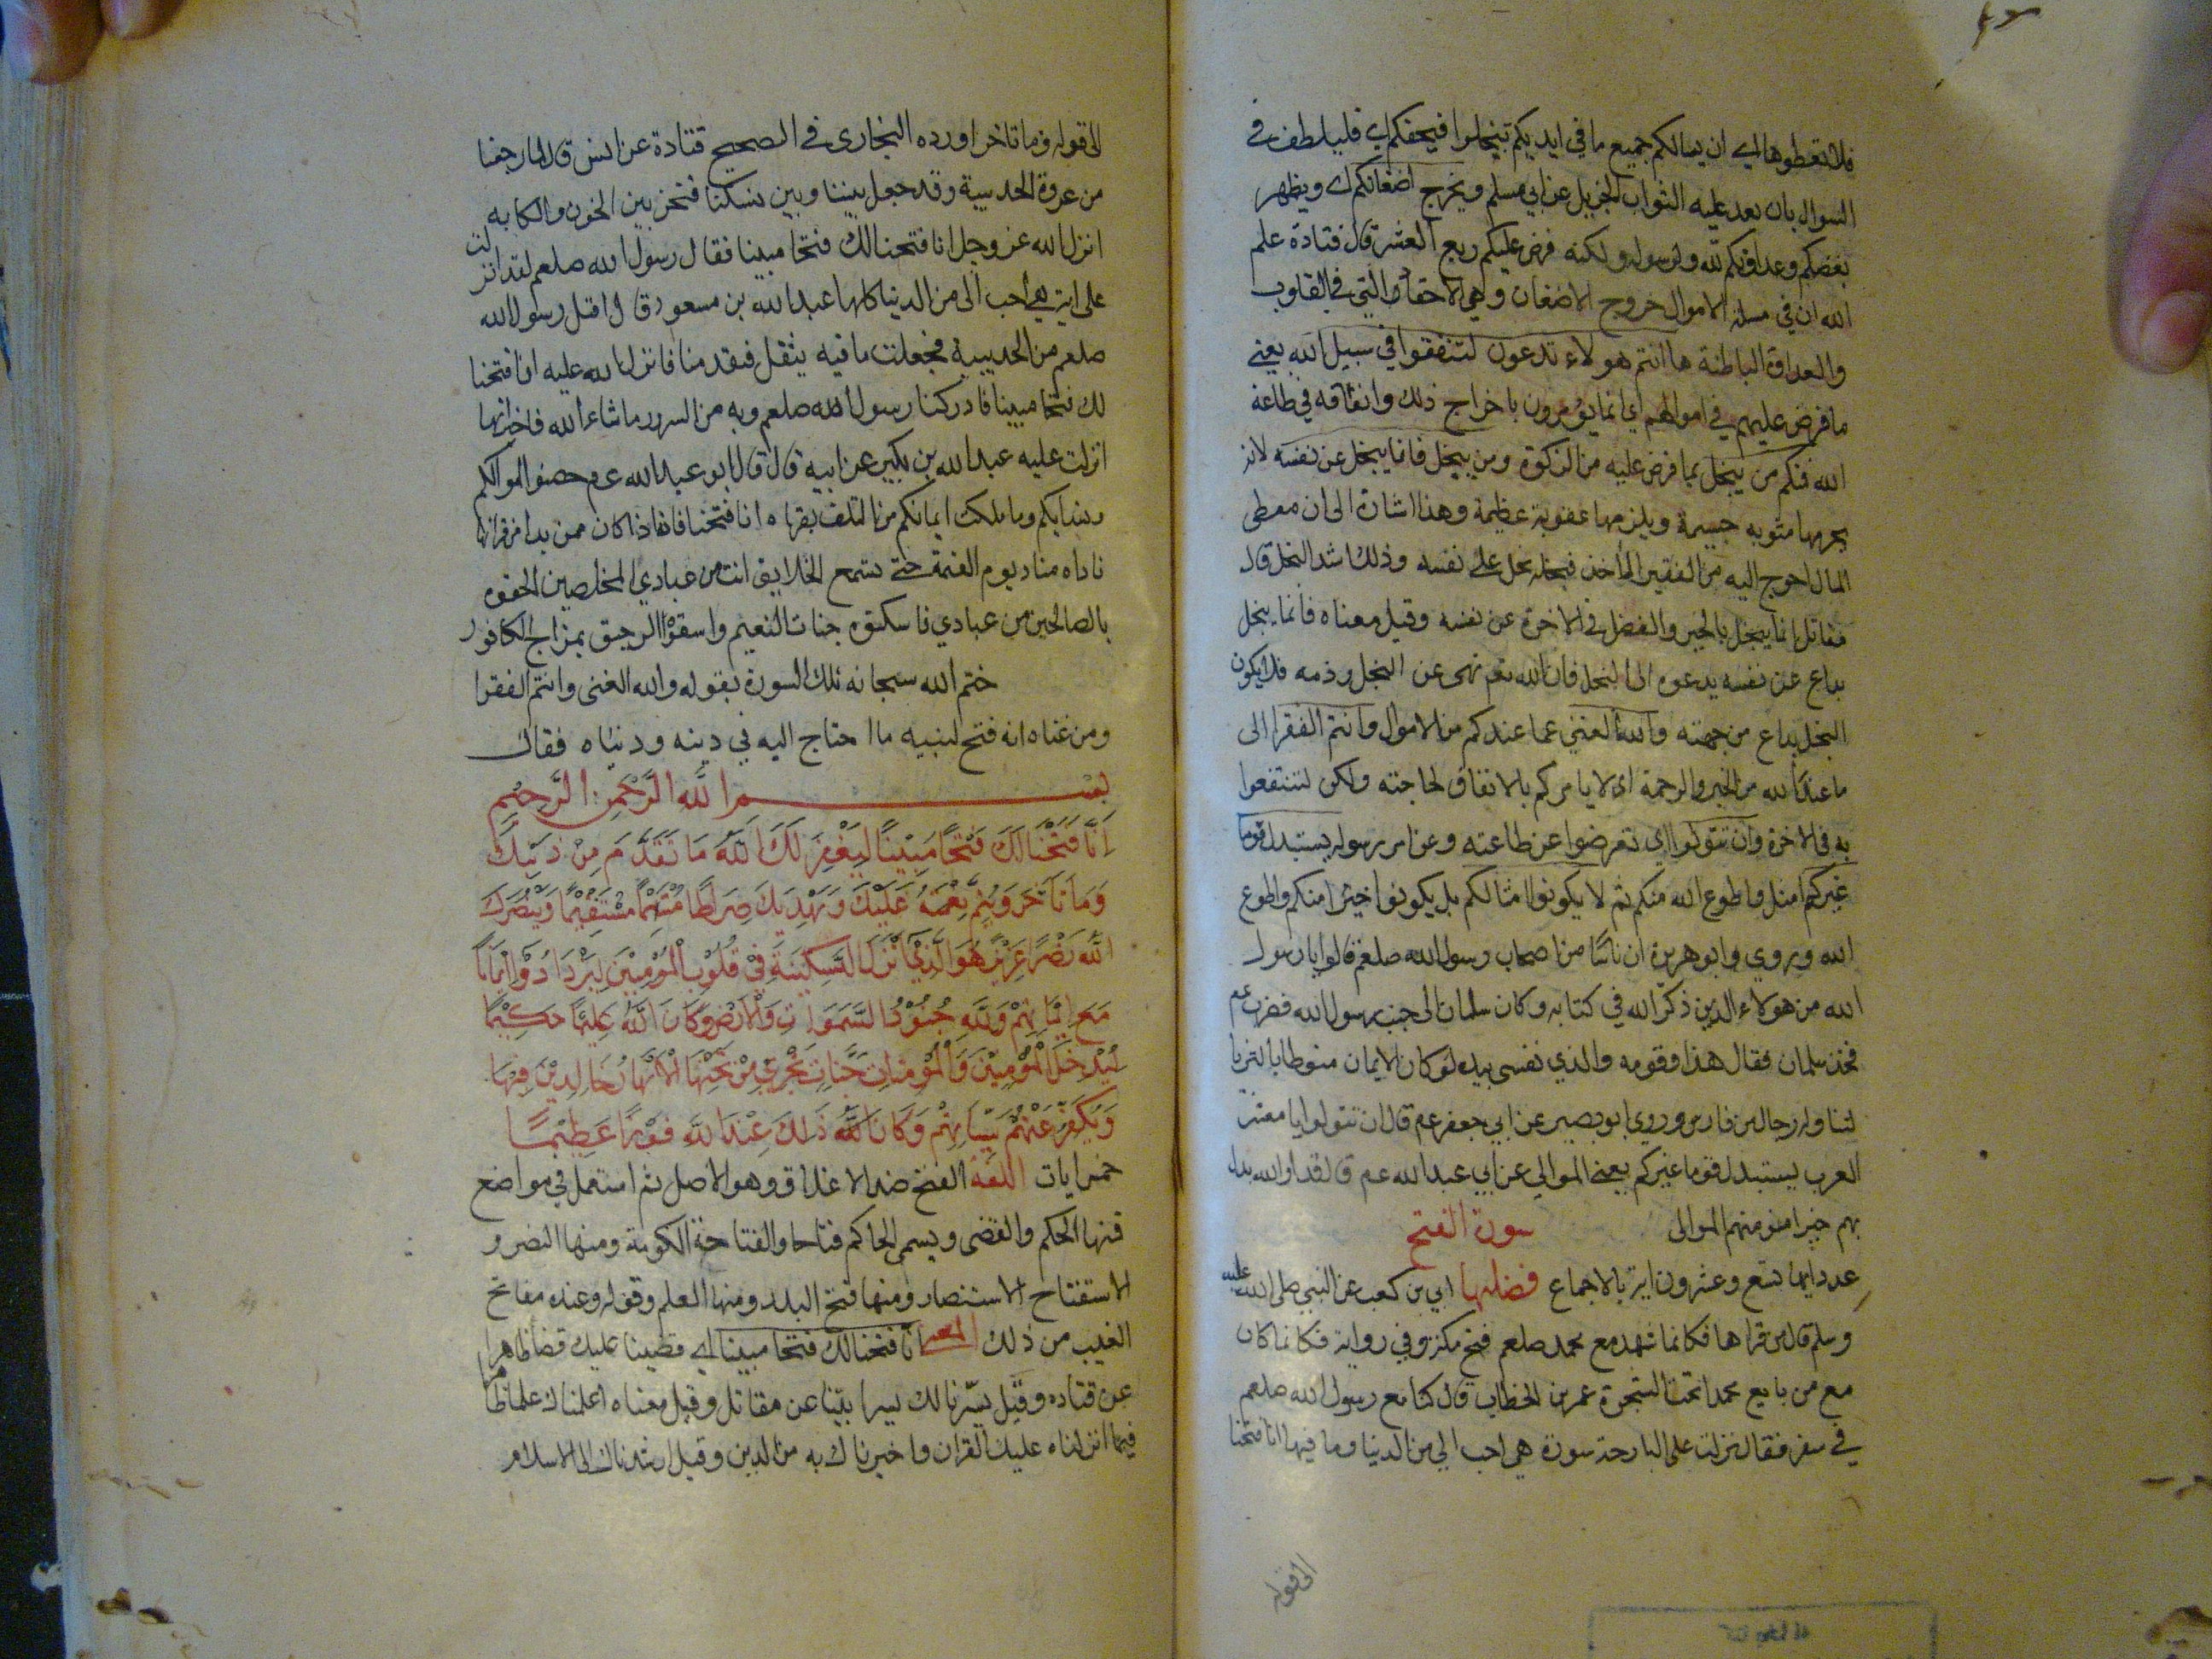 فلا تعطوها اي ان يسالكم جميع ما في ايديكم تبخلوا فيحفكم اي فليلطف في
السوال بان يعد عليه الثواب الجزيل عن ابي مسلم ويخرج اضغانكم اي ويظهر
بغضكم وعداوتكم لله ولرسوله ولكنه فرض عليكم ربع العشر قال قتادة علم
الله ان في مسئلة الاموال خروج الاضغان وهي الاحقاد التي في القلوب
والعداوة الباطنة ها انتم هولاء تدعون لتنفقوا في سبيل الله يعني
ما فرض عليهم في اموالهم اي انما يؤمرون باخراج ذلك وانفاقه في طاعة
الله فمنكم من يبخل بما فرض عليه من الزكوة ومن يبخل فانما يبخل عن نفسه لانه
يحرمها مثوبه جسيمة ويلزمها عقوبة عظيمة وهذا اشارة الى ان معطى
المال احوج اليه من الفقير الآخذ فبخله بخل على نفسه وذلك اشد البخل قال
مقاتل انما يبخل بالخير والفضل في الاخرة عن نفسه وقيل معناه فانما يبخل
بداع عن نفسه يدعوه الى البخل فان الله تعم نهى عن البخل وذمه فلا يكون
البخل بداع من جهته والله الغني عما عندكم من الاموال وانتم الفقرا الى
ما عند الله من الخير والرحمة اي لا يامركم بالانفاق لحاجته ولكن لتنتفعوا
به في الاخرة وان تتولوا اي تعرضوا عن طاعته وعن امر رسوله يستبدل قوما
غيركم امثل واطوع الله منكم ثم لا يكونوا امثالكم بل يكونوا خيرا منكم واطوع
الله وروي وابو هريرة ان ناسا من اصحاب رسول الله صلعم قالوا يا رسول
الله من هولاء الذين ذكر الله في كتابه وكان سلمان الى جنب رسول الله فضرب عم
فخذ سلمان فقال هذا وقومه والذي نفسى بيده لو كان الايمان منوطا بالثريا
لتناوله رجال من فارس وروي ابو بصير عن ابي جعفر عم قال ان تتولوا يا معشر
العرب يستبدل قوما غيركم يعني الموالي عن ابي عبد الله عم قال قد والله بدل
بهم خيرا منهم الموالى سورة الفتح
عدد ايها تسع وعشرون اية بالاجماع فضلها ابي بن كعب عن النبي صلى الله عليه
وسلم قال من قراها فكانما شهد مع محمد صلعم فتح مكة وفي رواية فكانما كان
مع من بايع محمدا تحت الشجرة عمر بن الخطاب قال كنا مع رسول الله صلعم
في سفر فقال نزلت على البارحة سورة هي احب الي من الدنيا وما فيها انا فتحنا
الى قوله
الى قوله وما تاخر اورده البخارى في الصحيح قتادة عن انس قال لما رجعنا
من غزوة الحديبية وقد حيل بيننا وبين نسكنا فنحن بين الحزن والكابه
انزل الله عز وجل انا فتحنا لك فتحا مبينا فقال رسول الله صلعم لقد انزلت
على اية هي احب الى من الدنيا كلها عبد الله بن مسعود قال اقبل رسول الله
صلعم من الحديبية فجعلت ناقته يثقل فتقدمنا فانزل الله عليه انا فتحنا
لك فتحا مبينا فادركنا رسول الله صلعم وبه من السرور ما شاء الله فاخبرنا انها
انزلت عليه عبد الله بن بكير عن ابيه قال قال ابو عبد الله عم حصنوا اموالكم
ونساءكم وما ملكت ايمانكم من التلف بقراه انا فتحنا فانه اذا كان ممن يدمن قرانها
ناداه مناد يوم القيمة حتى يسمع الخلايق انت من عبادي المخلصين الحقوه
بالصالحين من عبادي فاسكنوه جنات النعيم واسقوا الرحيق بمزاج الكافور
ختم الله سبحانه تلك السورة بقوله والله الغنى وانتم الفقرا
ومن غناه انه فتح لنبيه ما احتاج اليه في دينه ودنياه فقال
بسم الله الرحمن الرحيم
انا فتحنا لك فتحا مبينا ليغفر لك الله ما تقدم من ذنبك
وما تاخر ويتم نعمته عليك ويهديك صراطا مستقيما وينصرك
الله نصرا عزيزا هو الذي انزل السكينة في قلوب المؤمنين ليزدادوا ايمانا
مع ايمانهم ولله جنود السموات والارض وكان الله عليما حكيما
ليدخل المؤمنين والمؤمنات جنات تجري من تحتها الانهار خالدين فيها
ويكفر عنهم سيئاتهم وكان الله ذلك عند الله فوزا عظيما
خمس ايات اللغة الفتح ضد الاغلاق وهو الاصل ثم استعمل في مواضع
فمنها الحكم والقضى ويسمى الحاكم فتاحا والفتاحة الحكومة ومنها النصر و
الاستفتاح الاستنصار ومنها فتح البلد ومنها العلم وقوله وعنده مفاتح
الغيب من ذلك المعنى انا فتحنا لك فتحا مبينا اي قضينا عليك قضا ظاهرا
عن قتاده وقيل يسرنا لك يسرا بينا عن مقاتل وقيل معناه اعلمناك علما ظاهرا
فيما انزلناه عليك القران واخبرناك به من الدين وقيل ارشدناك الى الاسلام